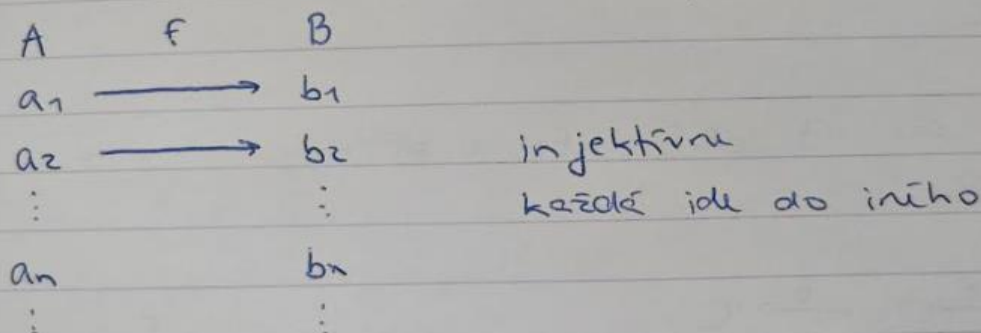 A f B
a1 → b1
a2 → b2 injektívne
⋮ ⋮ každé ide do iného
an bn
⋮ ⋮